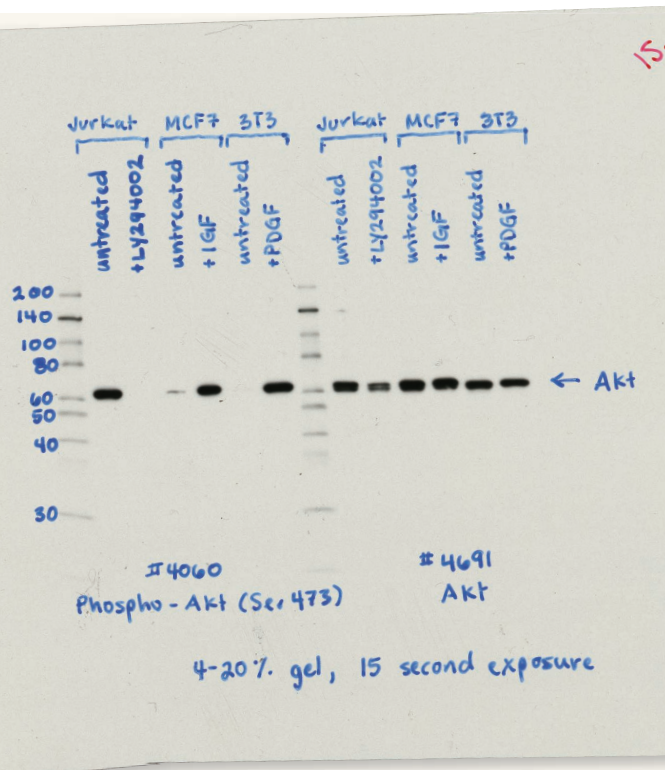 15
Jurkat MCF7 3T3 Jurkat MCF7 3T3
untreated +LY294002 untreated +IGF untreated +PDGF untreated +LY294002 untreated +IGF untreated +PDGF
200
140
100
80
60
50
40
30
← Akt
#4060
Phospho-Akt (Ser 473)
#4691
Akt
4-20% gel, 15 second exposure